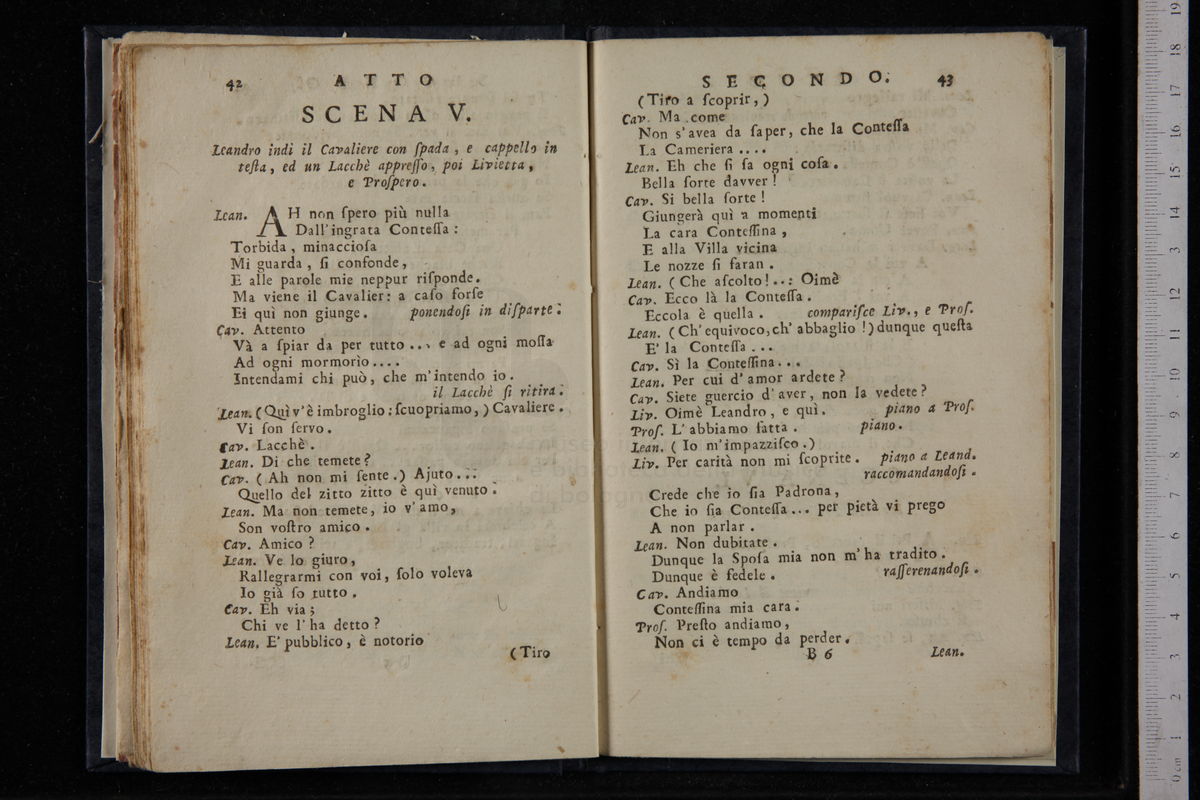 42 ATTO
SCENA V.
Leandro indi il Cavaliere con ſpada, e cappello in
teſta, ed un Lacchè appreſſo, poi Livietta,
e Proſpero.
Lean. AH non ſpero più nulla
Dall'ingrata Conteſſa:
Torbida, minaccioſa
Mi guarda, ſi confonde,
E alle parole mie neppur riſponde.
Ma viene il Cavalier: a caſo forſe
Ei quì non giunge. ponendoſi in diſparte.
Cav. Attento
Và a ſpiar da per tutto ... e ad ogni moſſa
Ad ogni mormorìo ....
Intendami chi può, che m'intendo io.
il Lacchè ſi ritira.
Lean. (Quì v'è imbroglio; ſcuopriamo,) Cavaliere.
Vi ſon ſervo.
Cav. Lacchè.
Lean. Di che temete?
Cav. (Ah non mi ſente.) Ajuto...
Quello del zitto zitto è quì venuto.
Lean. Ma non temete, io v'amo,
Son voſtro amico.
Cav. Amico?
Lean. Ve lo giuro,
Rallegrarmi con voi, ſolo voleva
Io già ſo tutto.
Cav. Eh via;
Chi ve l'ha detto?
Lean. E' pubblico, è notorio
(Tiro
SECONDO. 43
(Tiro a ſcoprir,)
Cav. Ma come
Non s'avea da ſaper, che la Conteſſa
La Cameriera ....
Lean. Eh che ſi ſa ogni coſa.
Bella ſorte davver!
Cav. Si bella ſorte!
Giungerà quì a momenti
La cara Conteſſina,
E alla Villa vicina
Le nozze ſi faran.
Lean. (Che aſcolto!..: Oimè
Cav. Ecco là la Conteſſa.
Eccola è quella. compariſce Liv., e Proſ.
Lean. (Ch'equivoco, ch'abbaglio!) dunque queſta
E' la Conteſſa ...
Cav. Sì la Conteſſina...
Lean. Per cui d'amor ardete?
Cav. Siete guercio d'aver, non la vedete?
Liv. Oimè Leandro, e quì. piano a Proſ.
Proſ. L'abbiamo fatta. piano.
Lean. (Io m'impazziſco.)
Liv. Per carità non mi ſcoprite. piano a Leand.
raccomandandoſi.
Crede che io ſia Padrona,
Che io ſia Conteſſa... per pietà vi prego
A non parlar.
Lean. Non dubitate.
Dunque la Spoſa mia non m'ha tradito.
Dunque è fedele. raſſerenandoſi.
Cav. Andiamo
Conteſſina mia cara.
Proſ. Preſto andiamo,
Non ci è tempo da perder.
B 6 Lean.
0 cm 1 2 3 4 5 6 7 8 9 10 11 12 13 14 15 16 17 18 19